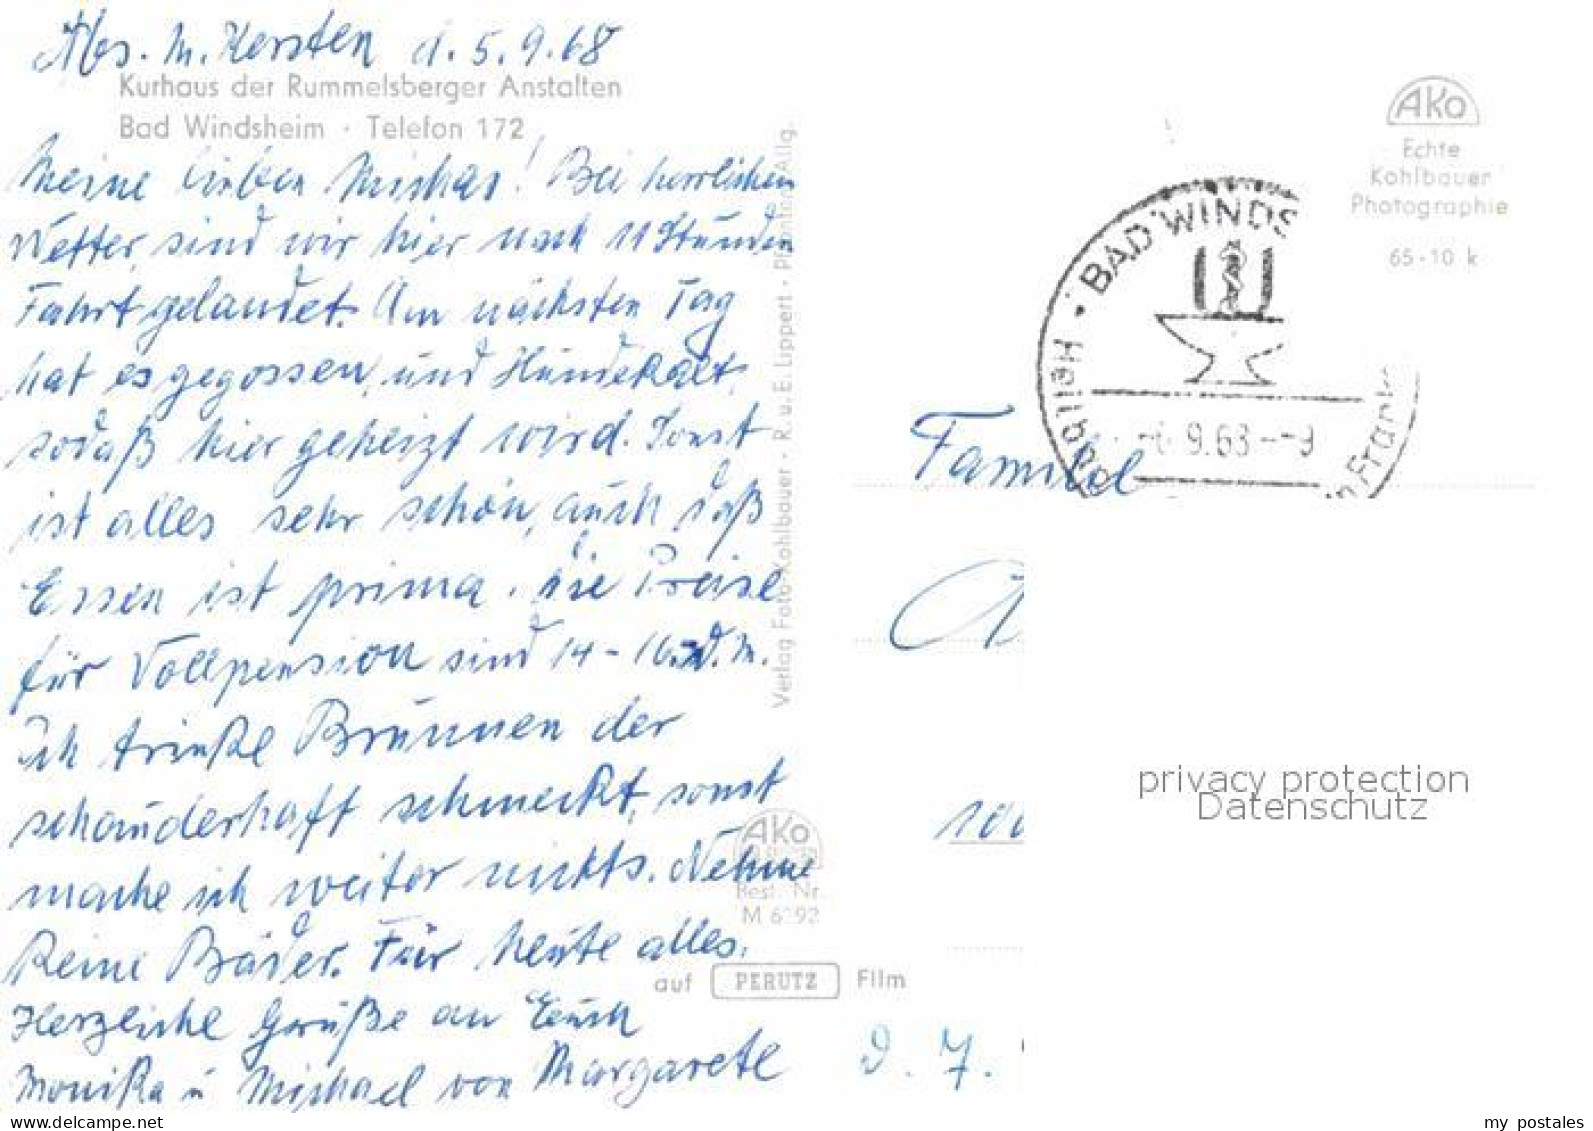 Abs. M. Kersten d. 5.9.68
Kurhaus der Rummelsberger Anstalten
Bad Windsheim · Telefon 172
Meine lieben ! Bei herrlichem
Wetter, sind wir hier nach 11 Stunden
Fahrt gelandet. Am nächsten Tag
hat es gegossen, und Hundekalt,
sodaß hier geheizt wird. Sonst
ist alles sehr schön, auch daß
Essen ist prima. die Preise
für Vollpension sind 14 - D.M.
Ich trinke Brunnen der
schauderhaft schmeckt, sonst
mache ich weiter nichts. Nehme
keine Bäder. Für heute alles.
Herzliche Grüße an Euch
Monika u Michael von Margarete
Verlag Foto-Kohlbauer · R. u. E. Lippert · Allg.
AKo
Best. Nr.
auf PERUTZ Film
AKo
Echte
Kohlbauer
Photographie
65-10 k
· BAD WINDS
9.68--9
Familie
privacy protection
Datenschutz
D. 7.
my postales